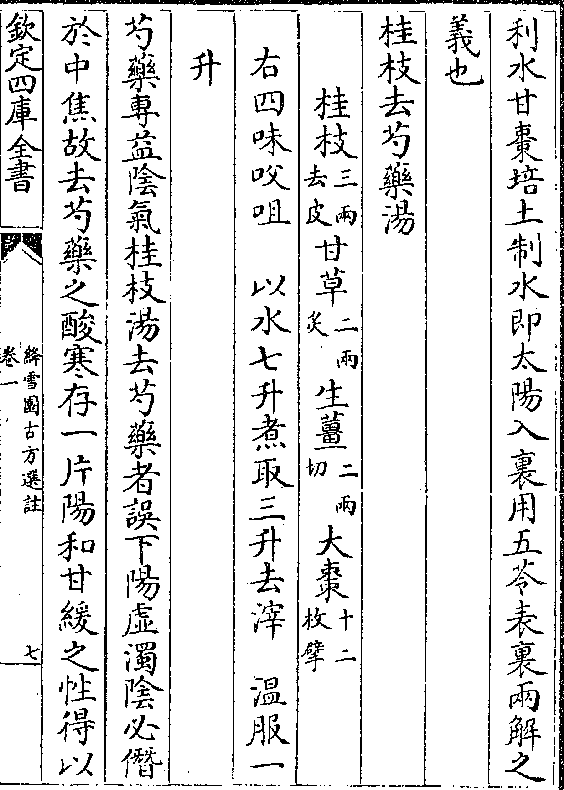 利水甘棗培土制水即太陽入裏用五苓表裏兩解之
義也
桂枝去芍藥湯
桂枝三兩去皮甘草二兩炙生薑二兩切大棗十二枚擘
右四味㕮咀　以水七升煮取三升去滓　溫服一
升
芍藥專益陰氣桂枝湯去芍藥者誤下陽虛濁陰必僭
於中焦故去芍藥之酸寒存一片陽和甘緩之性得以
欽定四庫全書
絳雪園古方選註
卷一
七